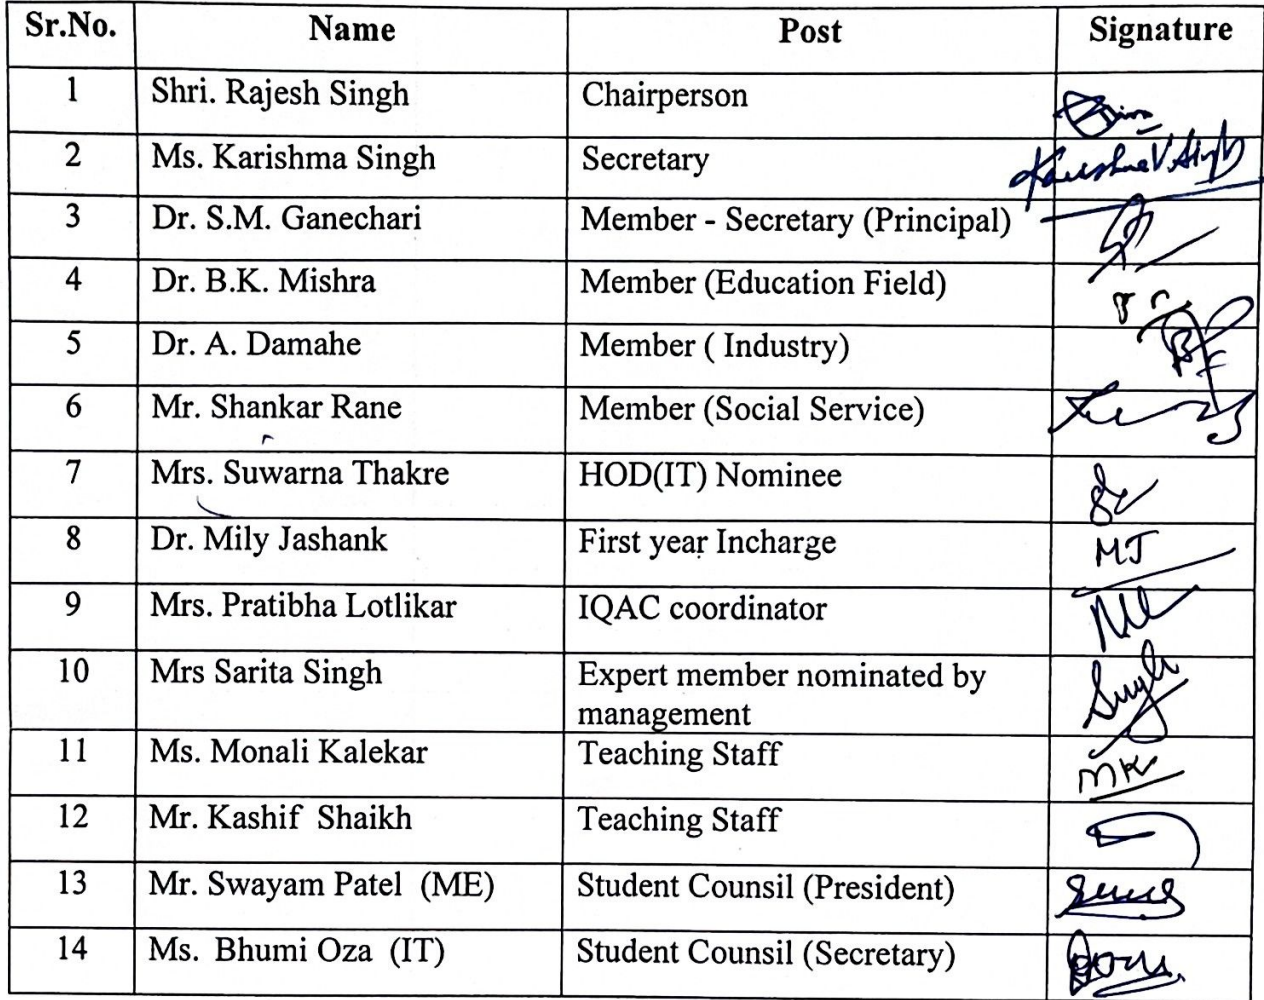 Sr.No. Name Post Signature
1 Shri. Rajesh Singh Chairperson
2 Ms. Karishma Singh Secretary
3 Dr. S.M. Ganechari Member - Secretary (Principal)
4 Dr. B.K. Mishra Member (Education Field)
5 Dr. A. Damahe Member ( Industry)
6 Mr. Shankar Rane Member (Social Service)
7 Mrs. Suwarna Thakre HOD(IT) Nominee
8 Dr. Mily Jashank First year Incharge MJ
9 Mrs. Pratibha Lotlikar IQAC coordinator
10 Mrs Sarita Singh Expert member nominated by
management
11 Ms. Monali Kalekar Teaching Staff MK
12 Mr. Kashif Shaikh Teaching Staff
13 Mr. Swayam Patel (ME) Student Counsil (President)
14 Ms. Bhumi Oza (IT) Student Counsil (Secretary)